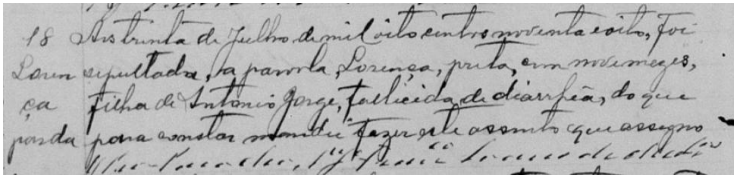 18 Aos trinta de Julho de mil oito centos noventa e oito, foi
Loren sepultada, a parvola, Lorença, preta, com nove mezes,
ça filha de Antonio Jorge, fallicida de diarrhéa, do que
parda para constar mandei fazer este assento que assigno